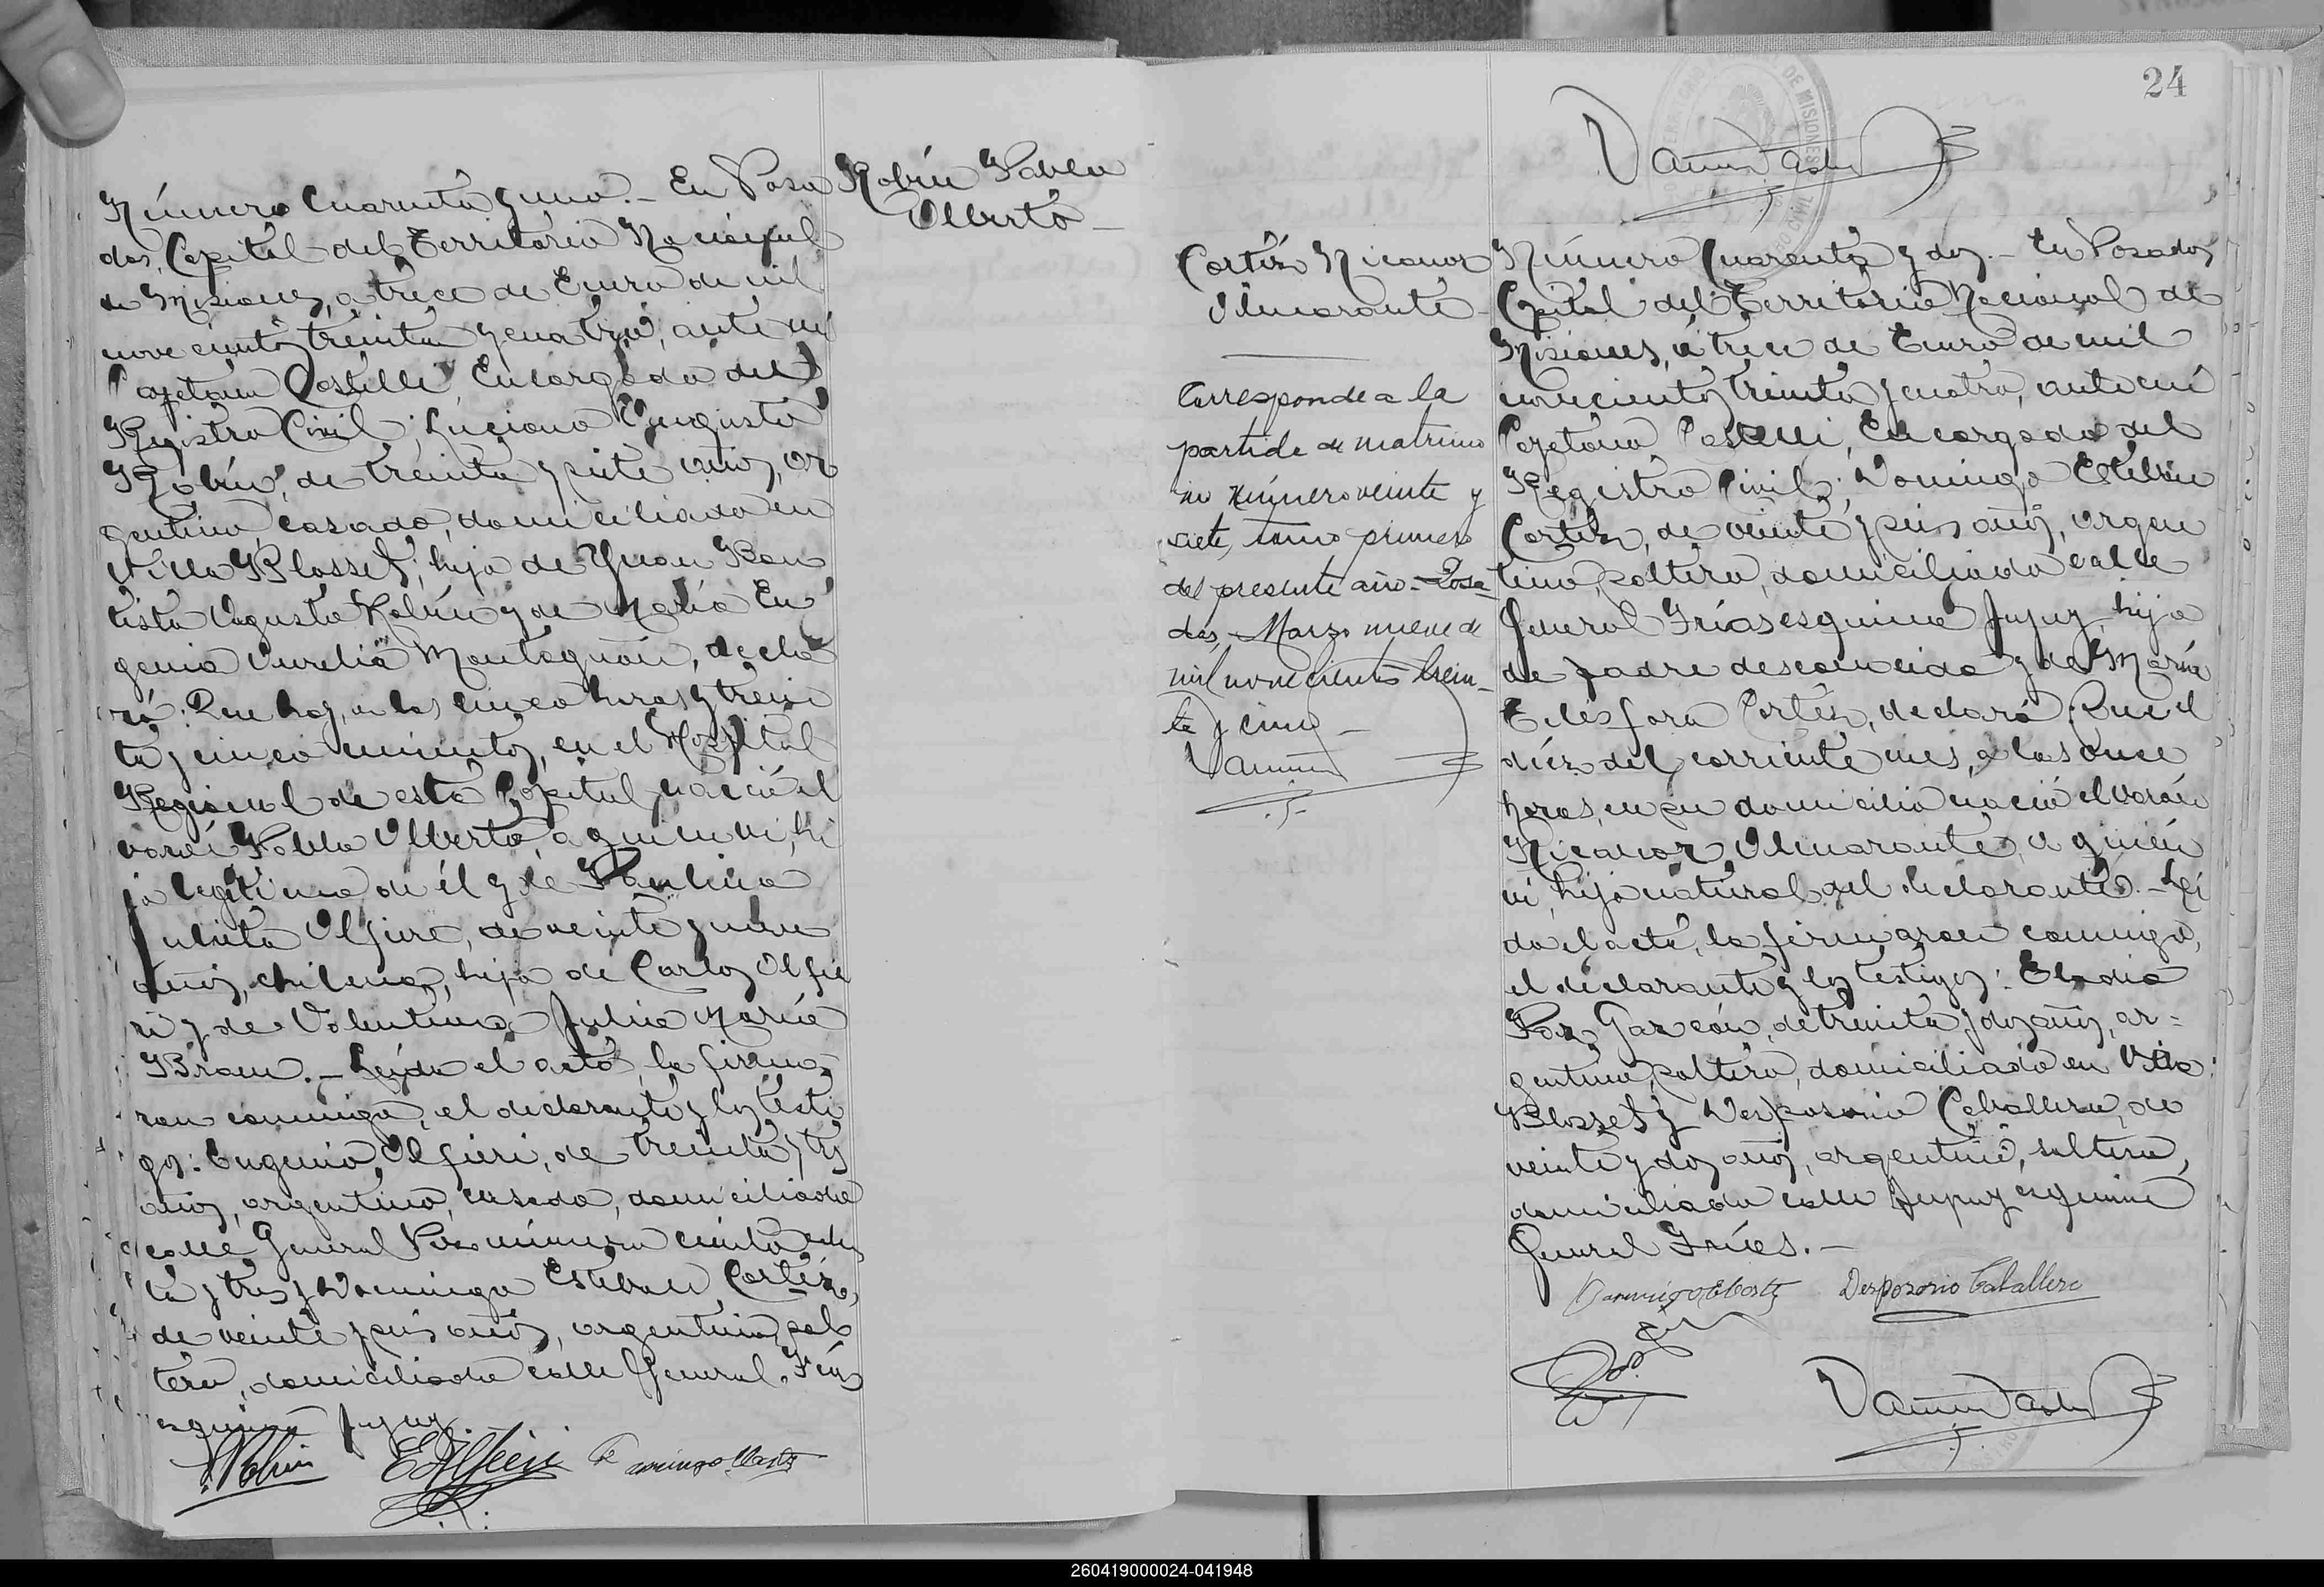 Número Cuarenta y uno.- En Posa
das, Capital del Territorio Nacional
de Misiones, a trece de Enero de mil
novecientos treinta y cuatro, ante mi
Cayetano Castelli, Encargado del
Registro Civil; Luciano Augusto
Robín, de treinta y siete años, ar
gentino, casado, domiciliado en
Villa Blosset, hijo de Juan Bau
tista Agusto Robín y de María Eu
genia Aurelia Montagnon, decla
ró: Que hoy, a las cinco horas y trein
ta y cinco minutos, en el Hospital
Regional de esta Capital, nació el
varón Pablo Alberto, a quien vi, hi
jo legítimo de él y de Paulina
Julieta Alfieri, de veinte y nueve
años, chilena, hija de Carlos Alfie
ri y de Valentina Julia María
Bram.- Leída el acta, la firma
ron conmigo, el declarante y los testi
gos: Eugenio Alfieri, de treinta y tres
años, argentino, casado, domiciliado
calle General Paz número ciento
ta y tres y Domingo Esteban Cortéz,
de veinte y seis años, argentino, sol
tero, domiciliado calle General Frías
esquina Jujuy.
Robin EAlfieri Domingo
Robín Pablo
Alberto-
24
DE MISIONES
Cortéz Nicanor
Almarante-
Corresponde a la
partida de matrimo
nio número veinte y
siete, tomo primero
del presente año.- Posa-
das, Marzo nueve de
mil novecientos trein-
ta y cinco-
Número Cuarenta y dos.- En Posadas
Capital del Territorio Nacional de
Misiones, a trece de Enero de mil
novecientos treinta y cuatro, ante mi
Cayetano Castelli, Encargado del
Registro Civil; Domingo Esteban
Cortéz, de veinte y seis años, argen
tino, soltero, domiciliado calle
General Frías esquina Jujuy, hijo
de padre desconocido y de María
Telésfora Cortéz, declaró: Que el
diéz del corriente mes, a las once
horas, en su domicilio nació el varón
Nicanor Almarante, a quién
vi, hijo natural del declarante.- Leí
da el acta, la firmaron conmigo,
el declarante y los testigos: Eladio
Paz Garzón, de treinta y dos años, ar=
gentino, soltero, domiciliado en Villa
Blosset y Desposorio Caballero, de
veinte y dos años, argentino, soltero,
domiciliado calle Jujuy esquina
General Frías.-
Domingo E Cortéz Desposorio Caballero
260419000024-041948